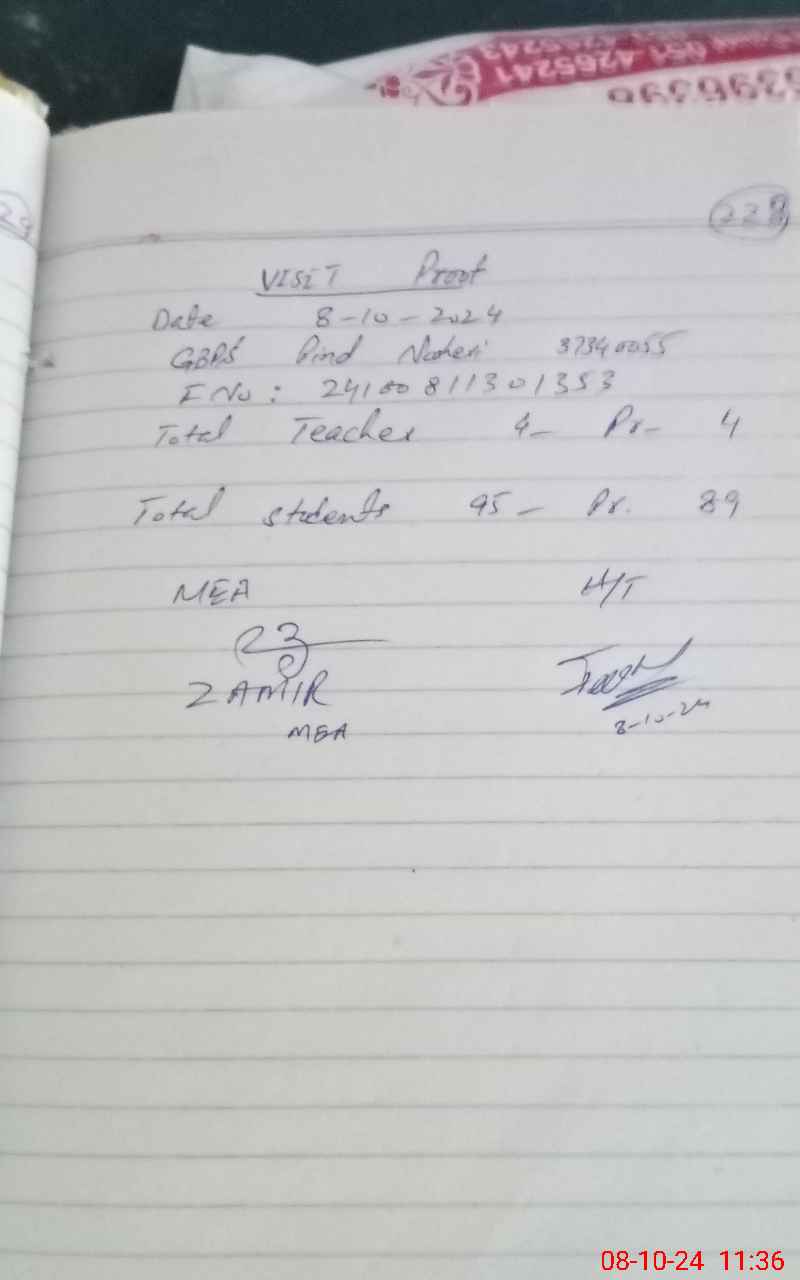 051 4265241
228
VISIT Proof
Date 8-10-2024
GBPS Pind 37340055
I No: 24100811301353
Total Teacher 4- Pr- 4
Total students 95- Pr. 89
MEA H/T
ZAMIR
MEA
8-10-24
08-10-24 11:36